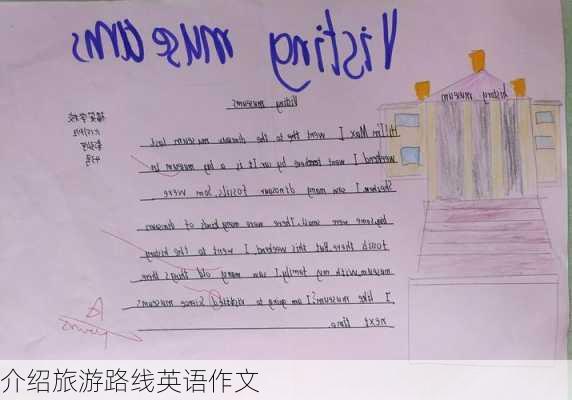 Visting museums
Visting museums
history museum
Hi I'm Max I went the to the museum last
weekend. I went by car. It is a big museum. In
I saw many dinosaur fossils. Some were
big, some were small. There were many kinds of
fossils there. But this weekend, I went to the history
museum with my family. I saw many old things there
I like museums! I am going to visited Sience museums
next time.
学校
介绍旅游路线英语作文